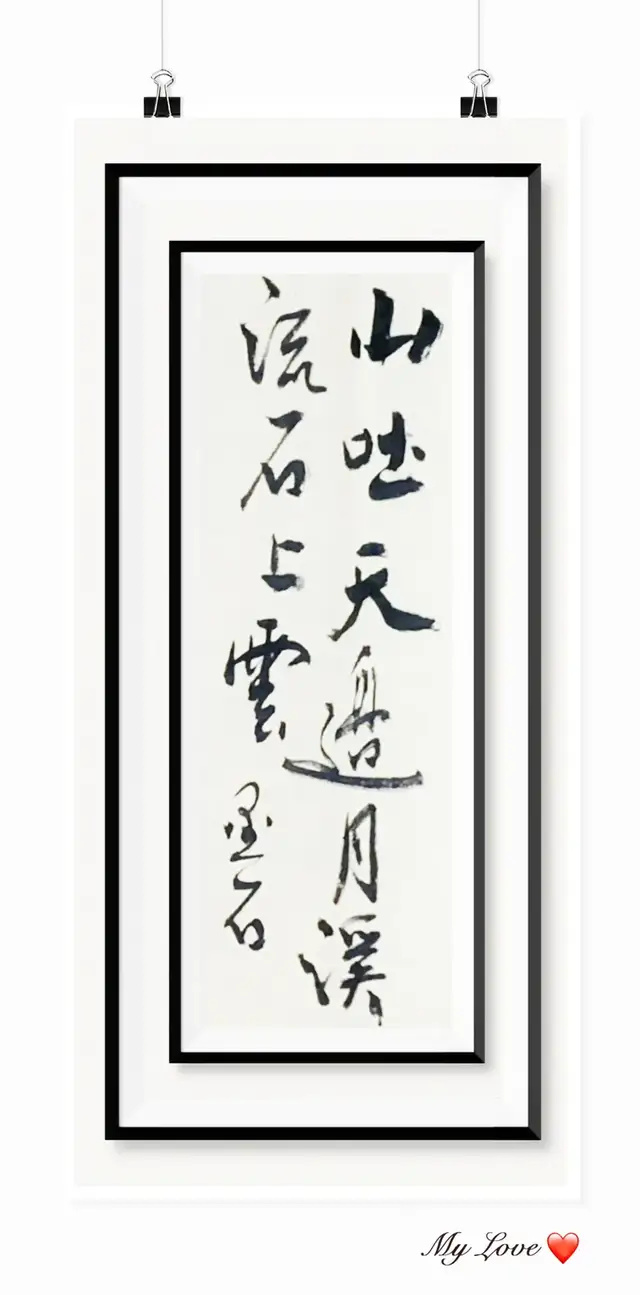 山吐天邊月溪
流石上雲
墨石
My Love ❤️